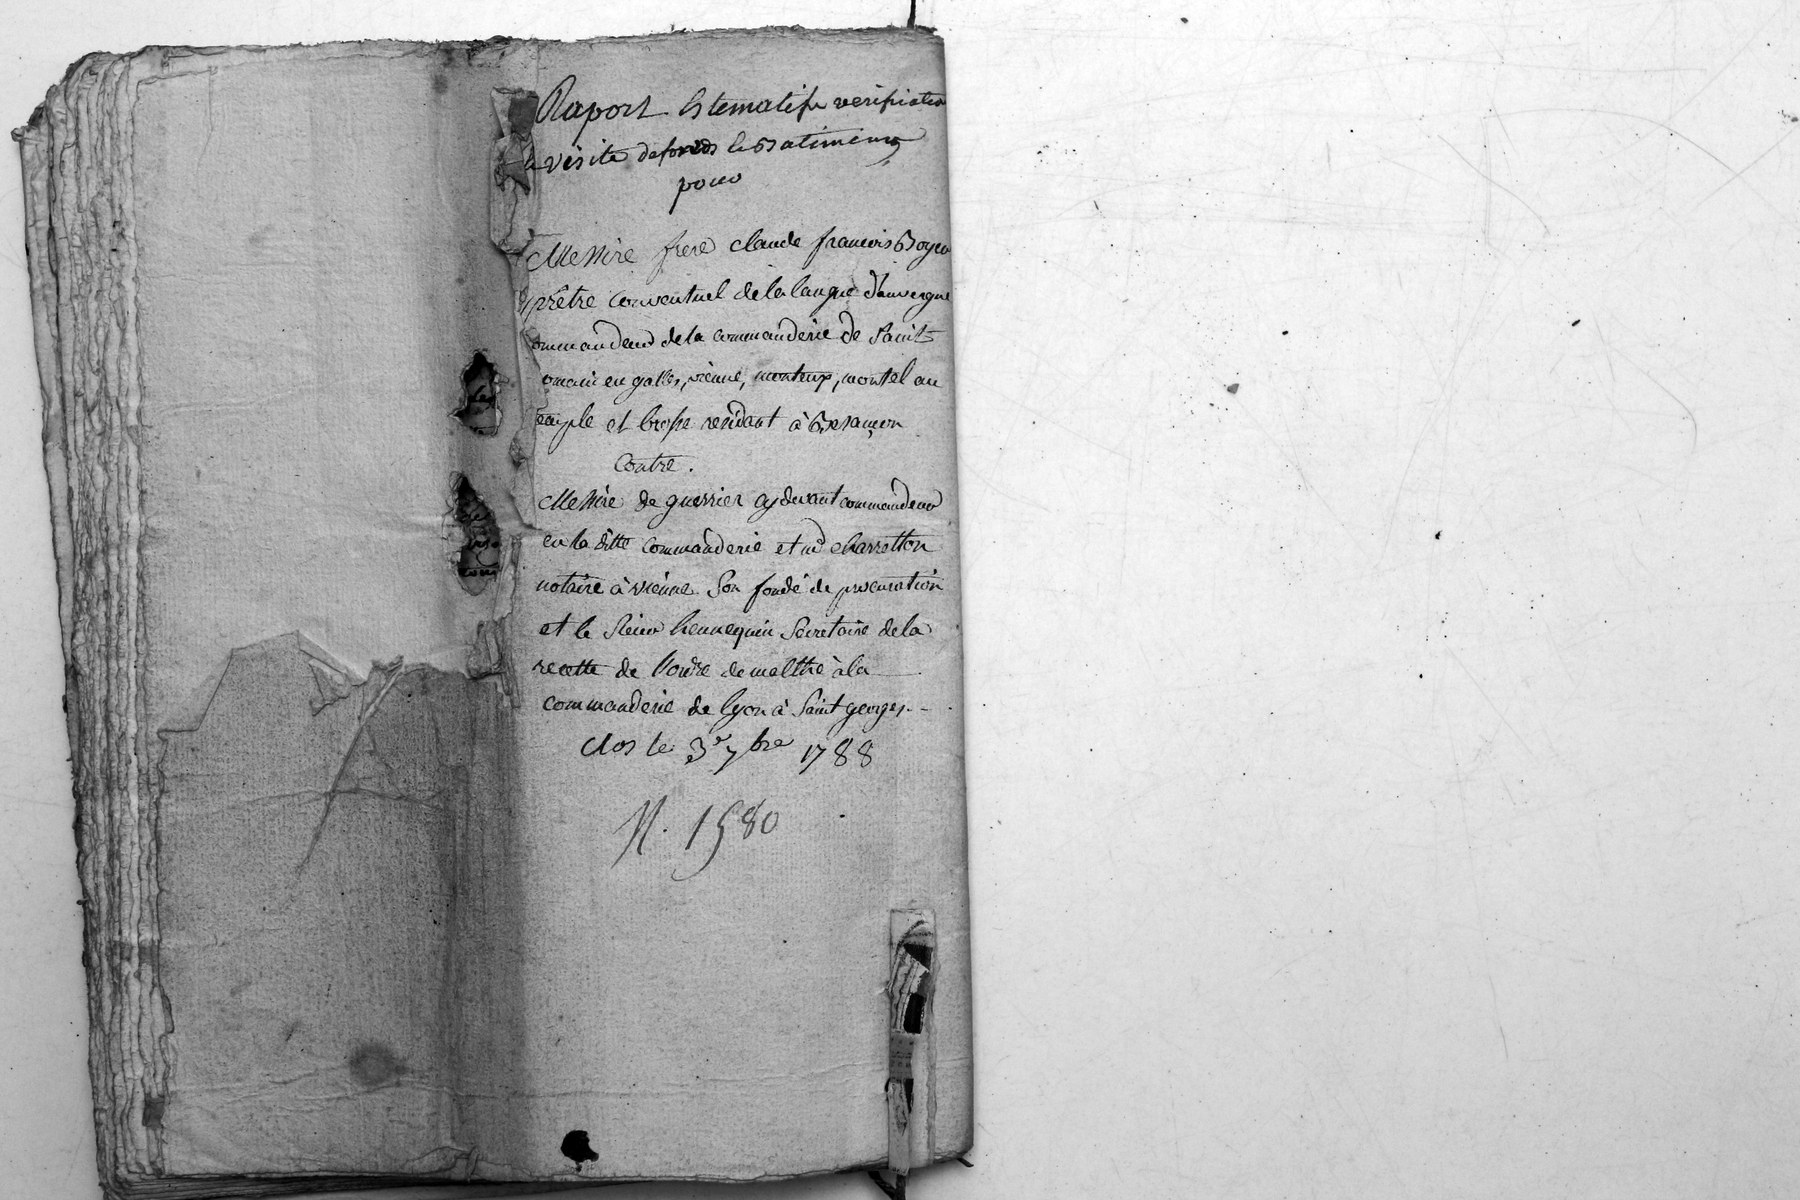 Raport Estematif verification
et visite de fonds et Batiments
pour
Messire frere claude francois Boyer
prêtre conventuel de la langue d'auvergne
ommandeur de la commanderie de Saint
omain en galles, vienne, montel au
emple et brosse residant à Besançon
contre.
Messire de guerrier cy devant commandeur
en la ditte commanderie et md charretton
notaire à vienne Son fondé de procuration
et le Sieur hennequin Secretaire de la
recette de l'ordre de malthe à la
commanderie de lyon à Saint georges.
Clos le 3e 7bre 1788
N. 1580